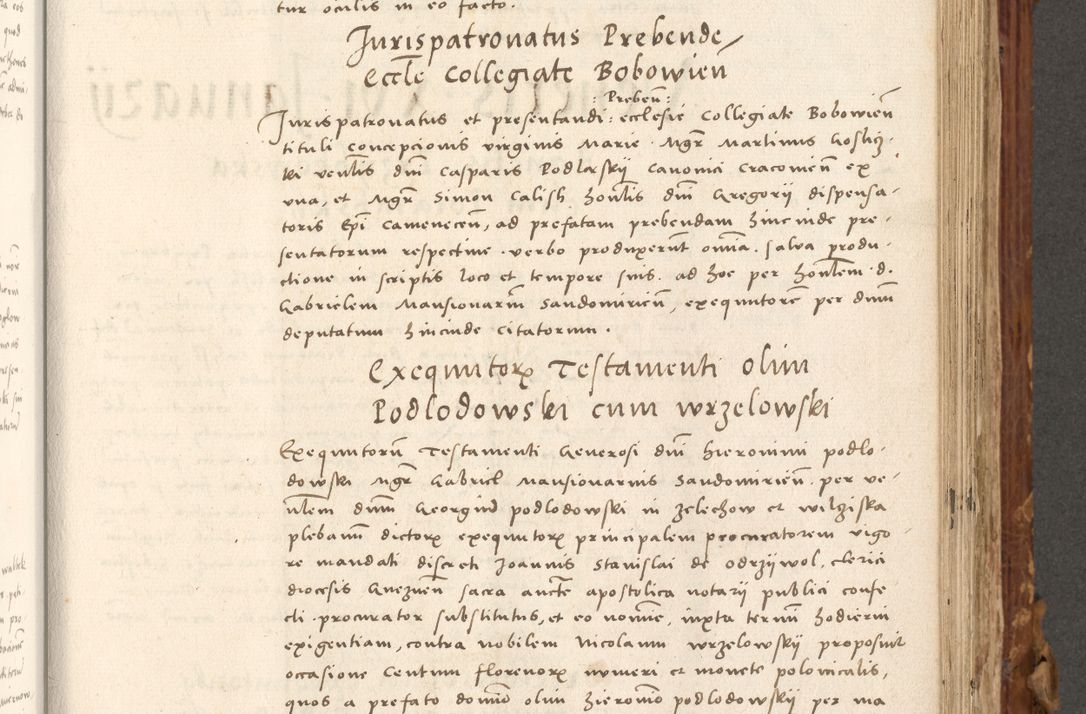 tur oculis in eo facto.
Jurispatronatus Prebende
Eccle Collegiate Bobowien
: Preben :
Jurispatronatus et presentandi : ecclesie Collegiate Bobowien
tituli concepcionis virginis Marie . Mgr Martinus Goslicz-
ki venlis dni Casparis Podlarskij Canonici Cracovien ex
una, et Mgr Simon Calish. honlis dni Gregorij dispensa-
toris Epi Camenecen, ad prefatam prebendam hincinde pre-
sentatorum respective . verbo produxerunt omnia . salva produ-
ctione in scriptis loco et tempore suis . ad hoc per honlem . d.
Gabrielem Mansionarium Sandomirien, exequutore per dnum
deputatum hincinde citatorum .
Exequutorum Testamenti olim
Podlodowski cum wrzelowski
Exequutorum Testamenti Generosi dni hieronimi podlo-
dowski Mgr Gabriel Mansionarius Sandomirien . per ve-
nlem dnum Georgium podlodowski in zelechow et wilziska
plebanum dictorum exequutorum principalem procuratorem vigo
re mandati discreti Joannis Stanislai de odrzijwol, clerici
diocesis Gneznen sacra aucte apostolica notarij publici confe
cti . procurator substitutus, et eo nomine, iuxta termini hodierni
exigentiam, contra nobilem Nicolaum wrzelowskij proposuit
occasione Centum florenorum numeri et monete polonicalis,
quos a prefato domino olim hieronimo podlodowskij per ma